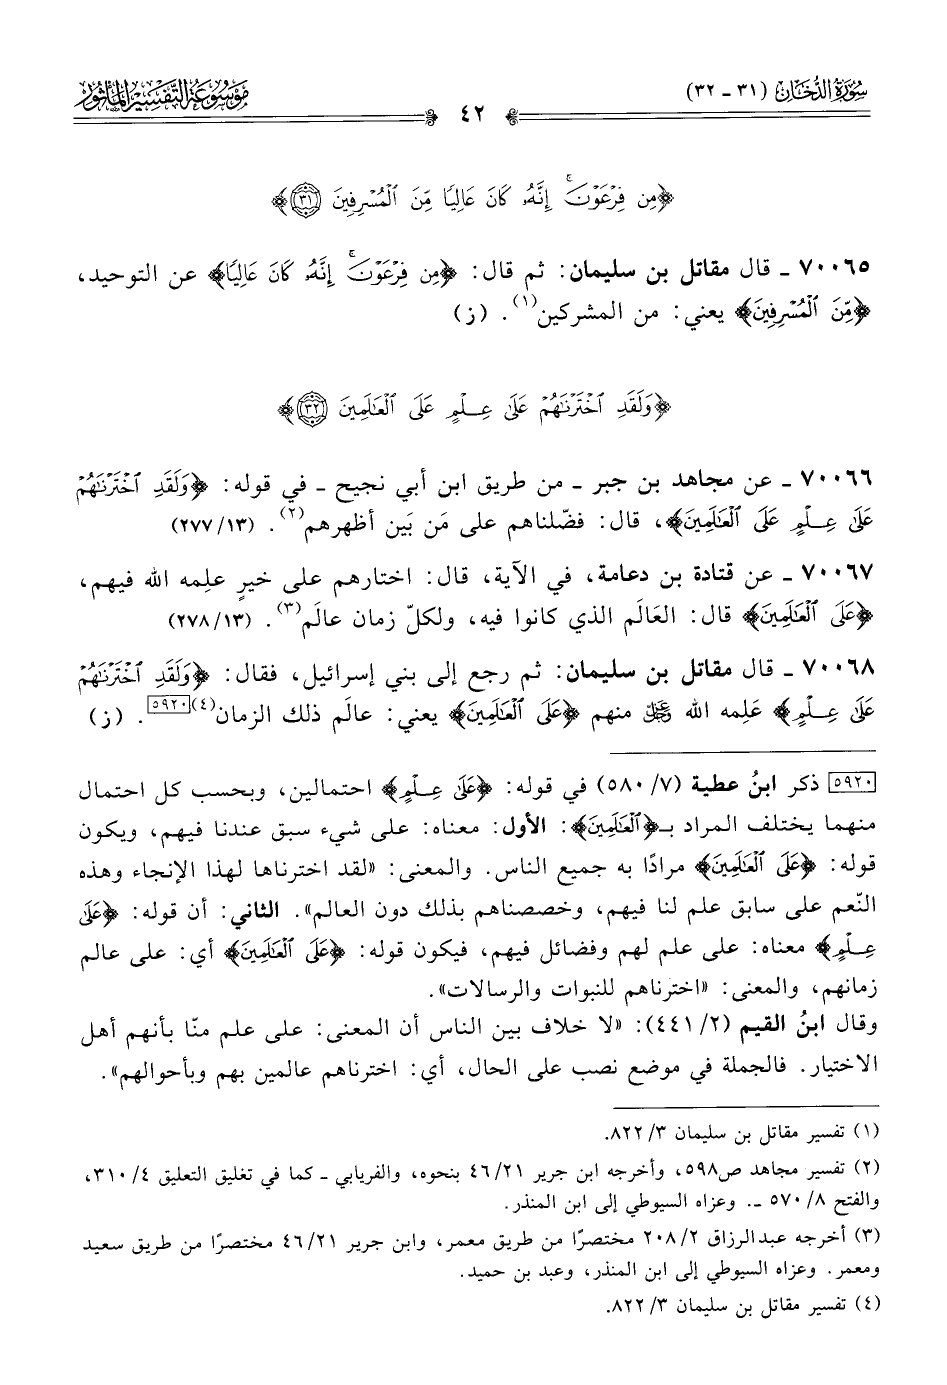 سُورَةُ الدُّخَان (٣١ - ٣٢)
٤٢
مَوْسُوعَة التَّفْسِير المَأثُور
﴿مِن فِرْعَوْنَۚ إِنَّهُۥ كَانَ عَالِيًا مِّنَ ٱلْمُسْرِفِينَ ٣١﴾
٧٠٠٦٥ ـ قال مقاتل بن سليمان: ثم قال: ﴿مِن فِرْعَوْنَۚ إِنَّهُۥ كَانَ عَالِيًا﴾ عن التوحيد،
﴿مِّنَ ٱلْمُسْرِفِينَ﴾ يعني: من المشركين(١). (ز)
﴿وَلَقَدِ ٱخْتَرْنَٰهُمْ عَلَىٰ عِلْمٍ عَلَى ٱلْعَٰلَمِينَ ٣٢﴾
٧٠٠٦٦ ـ عن مجاهد بن جبر ـ من طريق ابن أبي نجيح ـ في قوله: ﴿وَلَقَدِ ٱخْتَرْنَٰهُمْ
عَلَىٰ عِلْمٍ عَلَى ٱلْعَٰلَمِينَ﴾، قال: فضّلناهم على مَن بَين أظهرهم(٢). (٢٧٧/١٣)
٧٠٠٦٧ ـ عن قتادة بن دعامة، في الآية، قال: اختارهم على خيرٍ علِمه الله فيهم،
﴿عَلَى ٱلْعَٰلَمِينَ﴾ قال: العَالَم الذي كانوا فيه، ولكلّ زمان عالَم(٣). (٢٧٨/١٣)
٧٠٠٦٨ ـ قال مقاتل بن سليمان: ثم رجع إلى بني إسرائيل، فقال: ﴿وَلَقَدِ ٱخْتَرْنَٰهُمْ
عَلَىٰ عِلْمٍ﴾ عَلِمه الله ﷿ منهم ﴿عَلَى ٱلْعَٰلَمِينَ﴾ يعني: عالَم ذلك الزمان(٤)[٥٩٢٠]. (ز)
[٥٩٢٠] ذكر ابنُ عطية (٧/ ٥٨٠) في قوله: ﴿عَلَىٰ عِلْمٍ﴾ احتمالين، وبحسب كل احتمال
منهما يختلف المراد بـ﴿ٱلْعَٰلَمِينَ﴾: الأول: معناه: على شيء سبق عندنا فيهم، ويكون
قوله: ﴿عَلَى ٱلْعَٰلَمِينَ﴾ مرادًا به جميع الناس. والمعنى: «لقد اخترناها لهذا الإنجاء وهذه
النّعم على سابق علم لنا فيهم، وخصصناهم بذلك دون العالم». الثاني: أن قوله: ﴿عَلَىٰ
عِلْمٍ﴾ معناه: على علم لهم وفضائل فيهم، فيكون قوله: ﴿عَلَى ٱلْعَٰلَمِينَ﴾ أي: على عالم
زمانهم، والمعنى: «اخترناهم للنبوات والرسالات».
وقال ابنُ القيم (٢/ ٤٤١): «لا خلاف بين الناس أن المعنى: على علم منّا بأنهم أهل
الاختيار. فالجملة في موضع نصب على الحال، أي: اخترناهم عالمين بهم وبأحوالهم».
(١) تفسير مقاتل بن سليمان ٣/ ٨٢٢.
(٢) تفسير مجاهد ص٥٩٨، وأخرجه ابن جرير ٢١/ ٤٦ بنحوه، والفريابي ـ كما في تغليق التعليق ٤/ ٣١٠،
والفتح ٨/ ٥٧٠ ـ. وعزاه السيوطي إلى ابن المنذر.
(٣) أخرجه عبدالرزاق ٢/ ٢٠٨ مختصرًا من طريق معمر، وابن جرير ٢١/ ٤٦ مختصرًا من طريق سعيد
ومعمر. وعزاه السيوطي إلى ابن المنذر، وعبد بن حميد.
(٤) تفسير مقاتل بن سليمان ٣/ ٨٢٢.